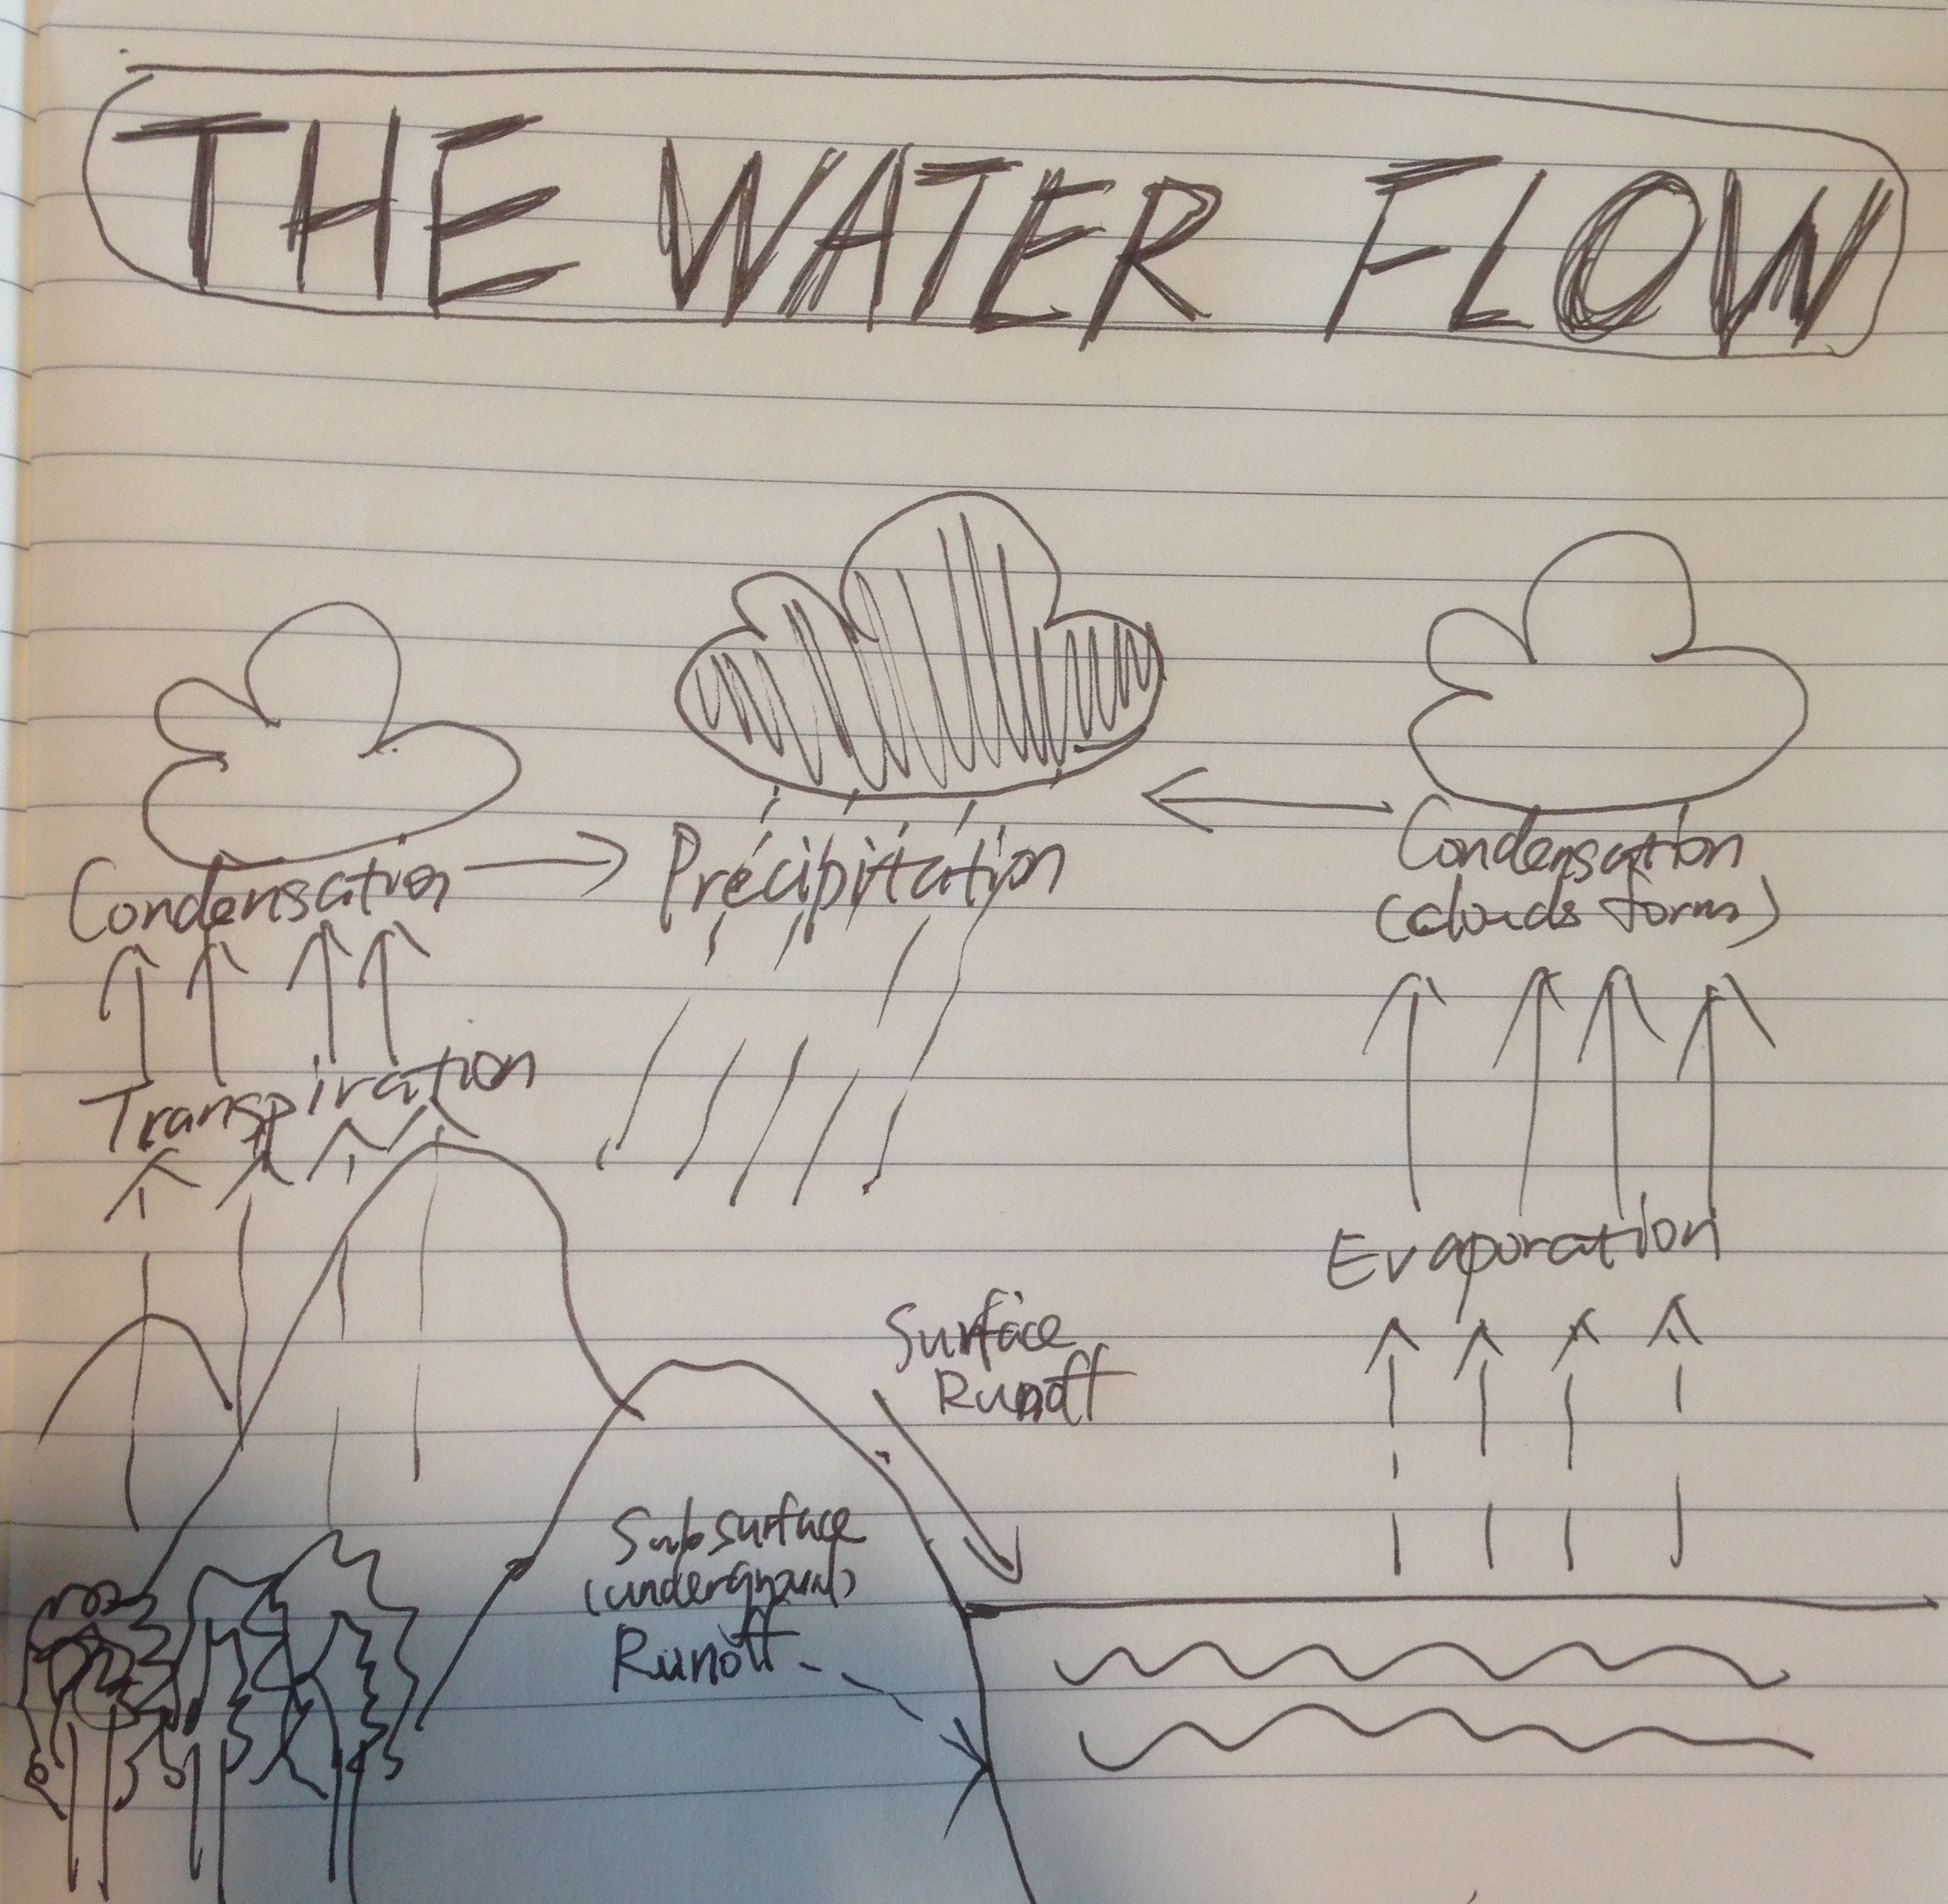 THE WATER FLOW
Condensation
Précipitation
Condensation
(clouds form)
Transpiration
Evaporation
Surface
Runoff
Subsurface
(underground)
Runoff